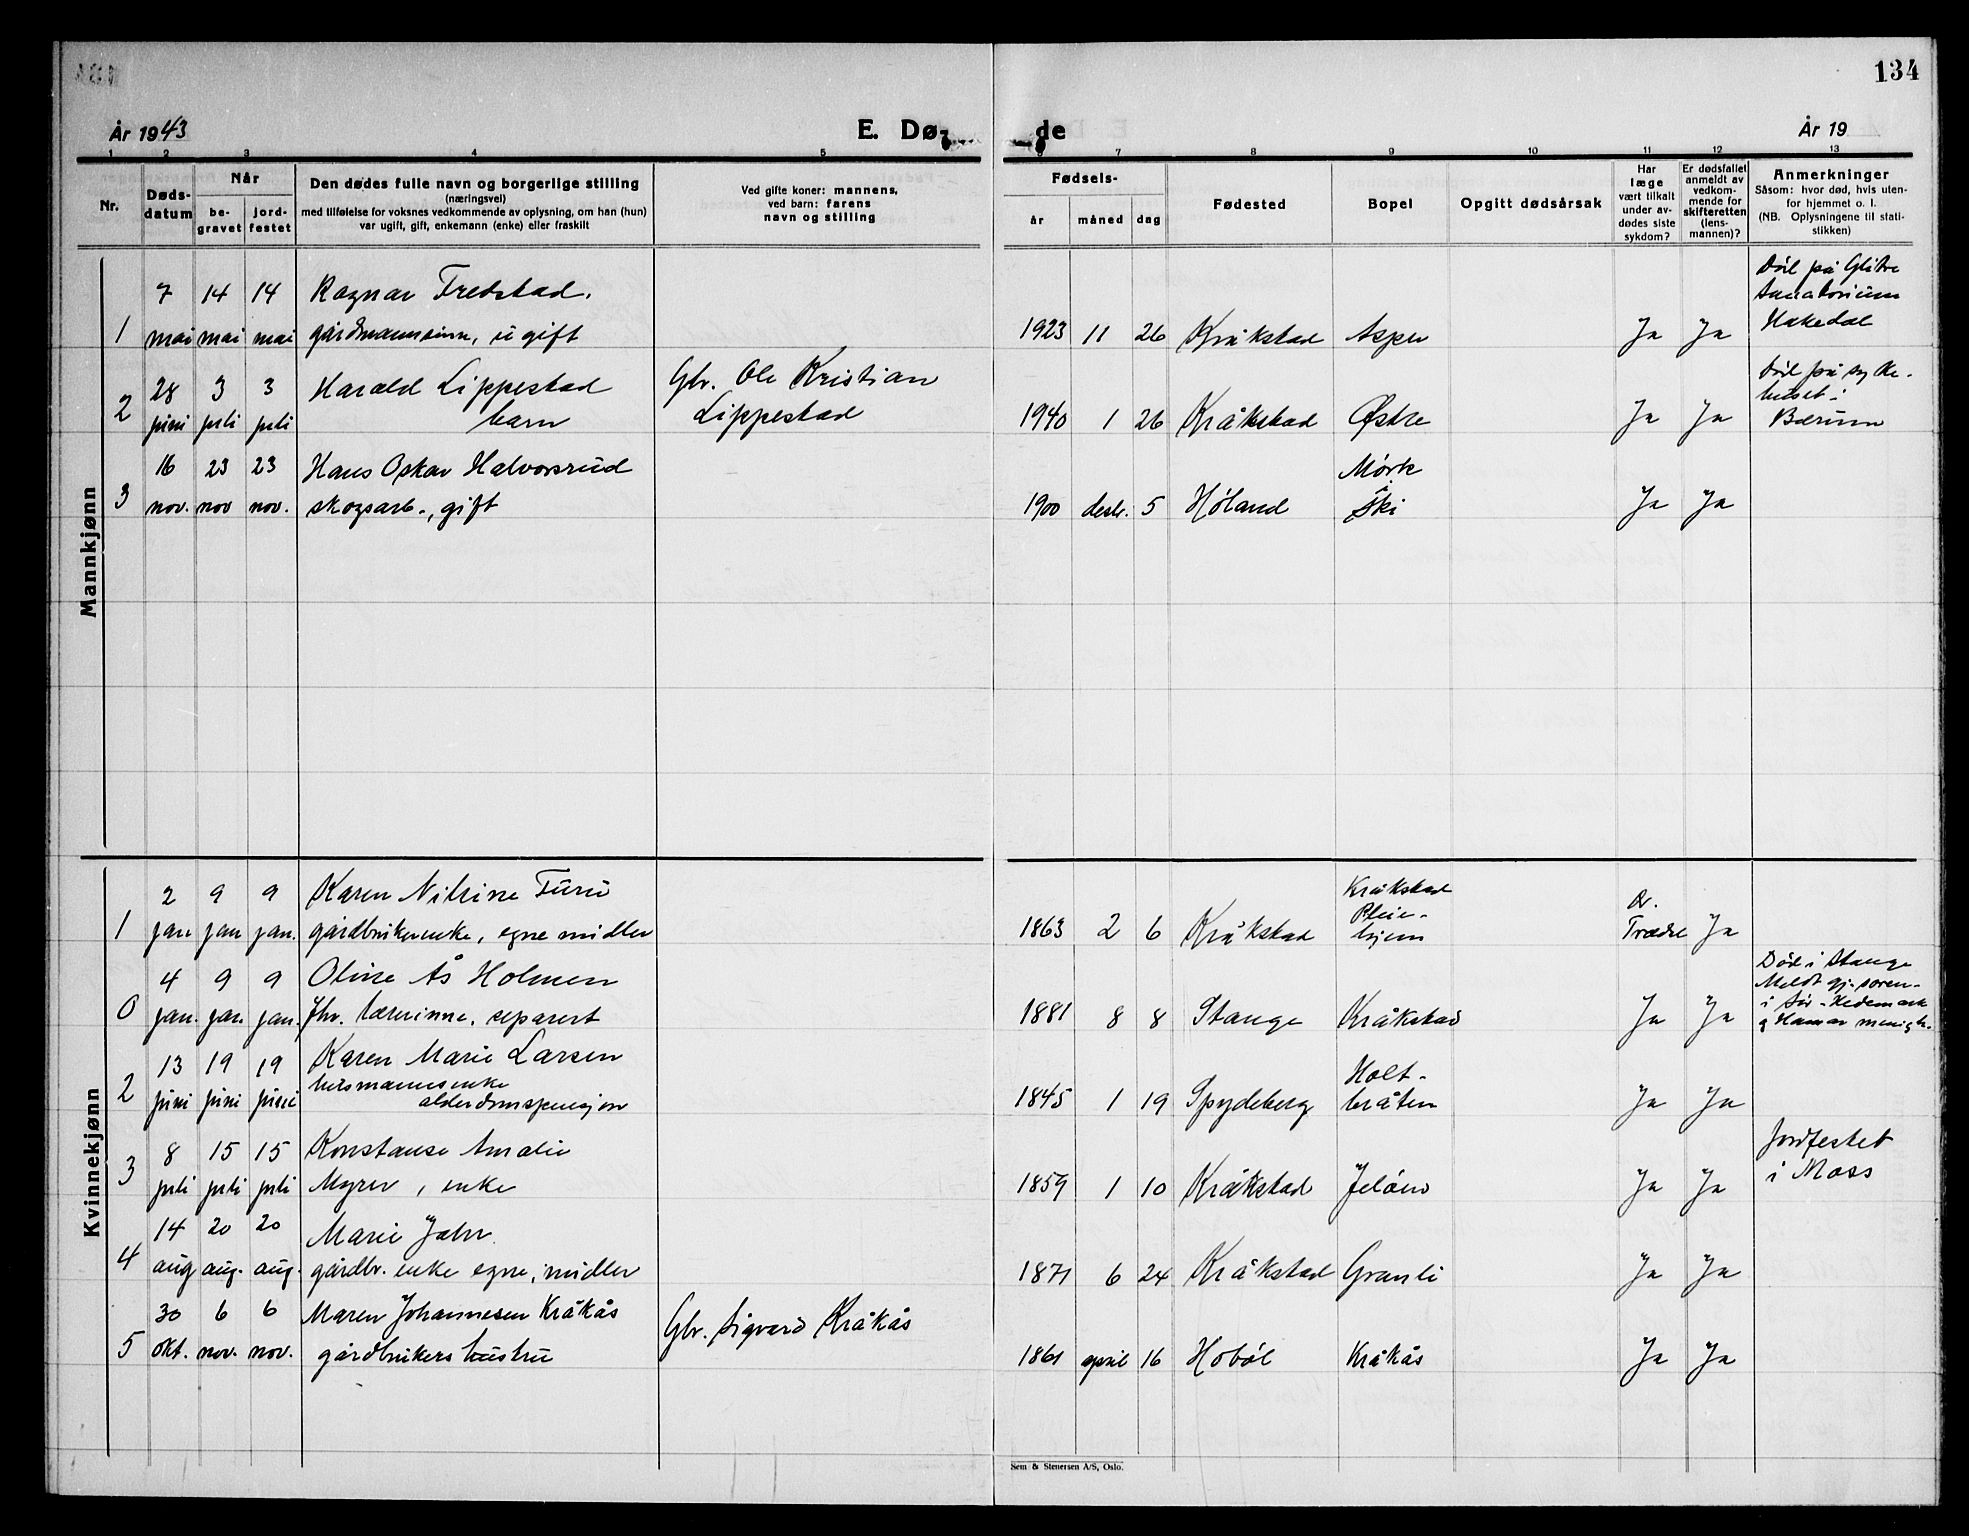 134
År 1943
E. Dø de
År 19
1 2 3 4 5 7 8 9 10 11 12 13
Nr.
Døds-
datum
Når
be-
gravet
jord-
festet
Den dødes fulle navn og borgerlige stilling
(næringsvei)
med tilføielse for voksnes vedkommende av oplysning, om han (hun)
var ugift, gift, enkemann (enke) eller fraskilt
Ved gifte koner: mannens,
ved barn: farens
navn og stilling
Fødsels-
år måned dag
Fødested
Bopel
Opgitt dødsårsak
Har
læge
vært tilkalt
under av-
dødes siste
sykdom?
Er dødsfallet
anmeldt av
vedkom-
mende for
skifteretten
(lens-
mannen)?
Anmerkninger
Såsom: hvor død, hvis uten-
for hjemmet o. l.
(NB. Oplysningene til stati-
stikken)
Mannkjønn
7 14 14 Ragnar Fredstad. Död på Glitre
Sanatorium
1 mai mai mai gårdmannsinn, ugift 1923 11 26 Kråkstad Asper Ja Ja Hakedal
28 3 3 Harald Lippestad Gbr. Ole Kristian Död på syke-
huset i
2 juni juli juli barn Lippestad 1940 1 26 Kråkstad Østre Ja Ja Bærum
16 23 23 Hans Oskar Halvorsrud Mörk
3 nov. nov nov. skogsarb., gift 1900 desbr. 5 Höland i Ski Ja Ja
Kvinnekjønn
2 9 9 Karen Nilsine Furu Kråkstad Dr.
Pleie-
1 jan jan jan. gårdbrukerenke, egne midler 1863 2 6 Kråkstad hjem Trædre Ja
4 9 9 Oline Ås Holmen Död i Stange
Meldt gj. soren-
0 jan. jan. jan. fhv. lærerinne, separert 1881 8 8 Stange Kråkstad Ja Ja i Sör-Hedemark
og Hamar menigh.
13 19 19 Karen Marie Larsen Holt-
husmannsenke
2 juni juni juni alderdomspensjon 1845 1 19 Spydeberg bråten Ja Ja
8 15 15 Konstanse Amalie Jordfestet
3 juli juli juli Myrer, enke 1859 1 10 Kråkstad Jelöen Ja Ja i Moss
14 20 20 Marie Jahr
4 aug aug. aug. gårdbr. enke egne, midler 1871 6 24 Kråkstad Granli Ja Ja
30 6 6 Maren Johannesen Kråkås Gbr. Sigvard Kråkås
5 okt. nov. nov. gårdbrukers hustru 1861 april 16 Hobøl Kråkås Ja Ja
Sem & Stenersen A/S, Oslo.